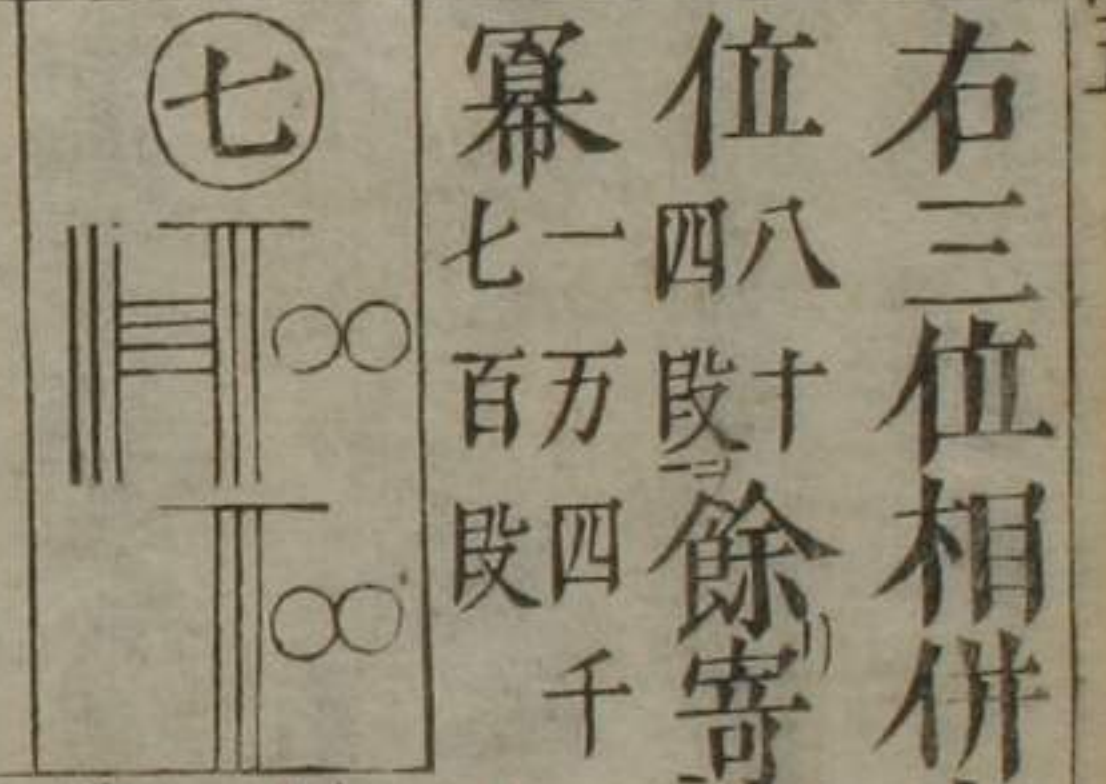 右三位相併
位八十四段餘寄
冪一万四千七百段
七